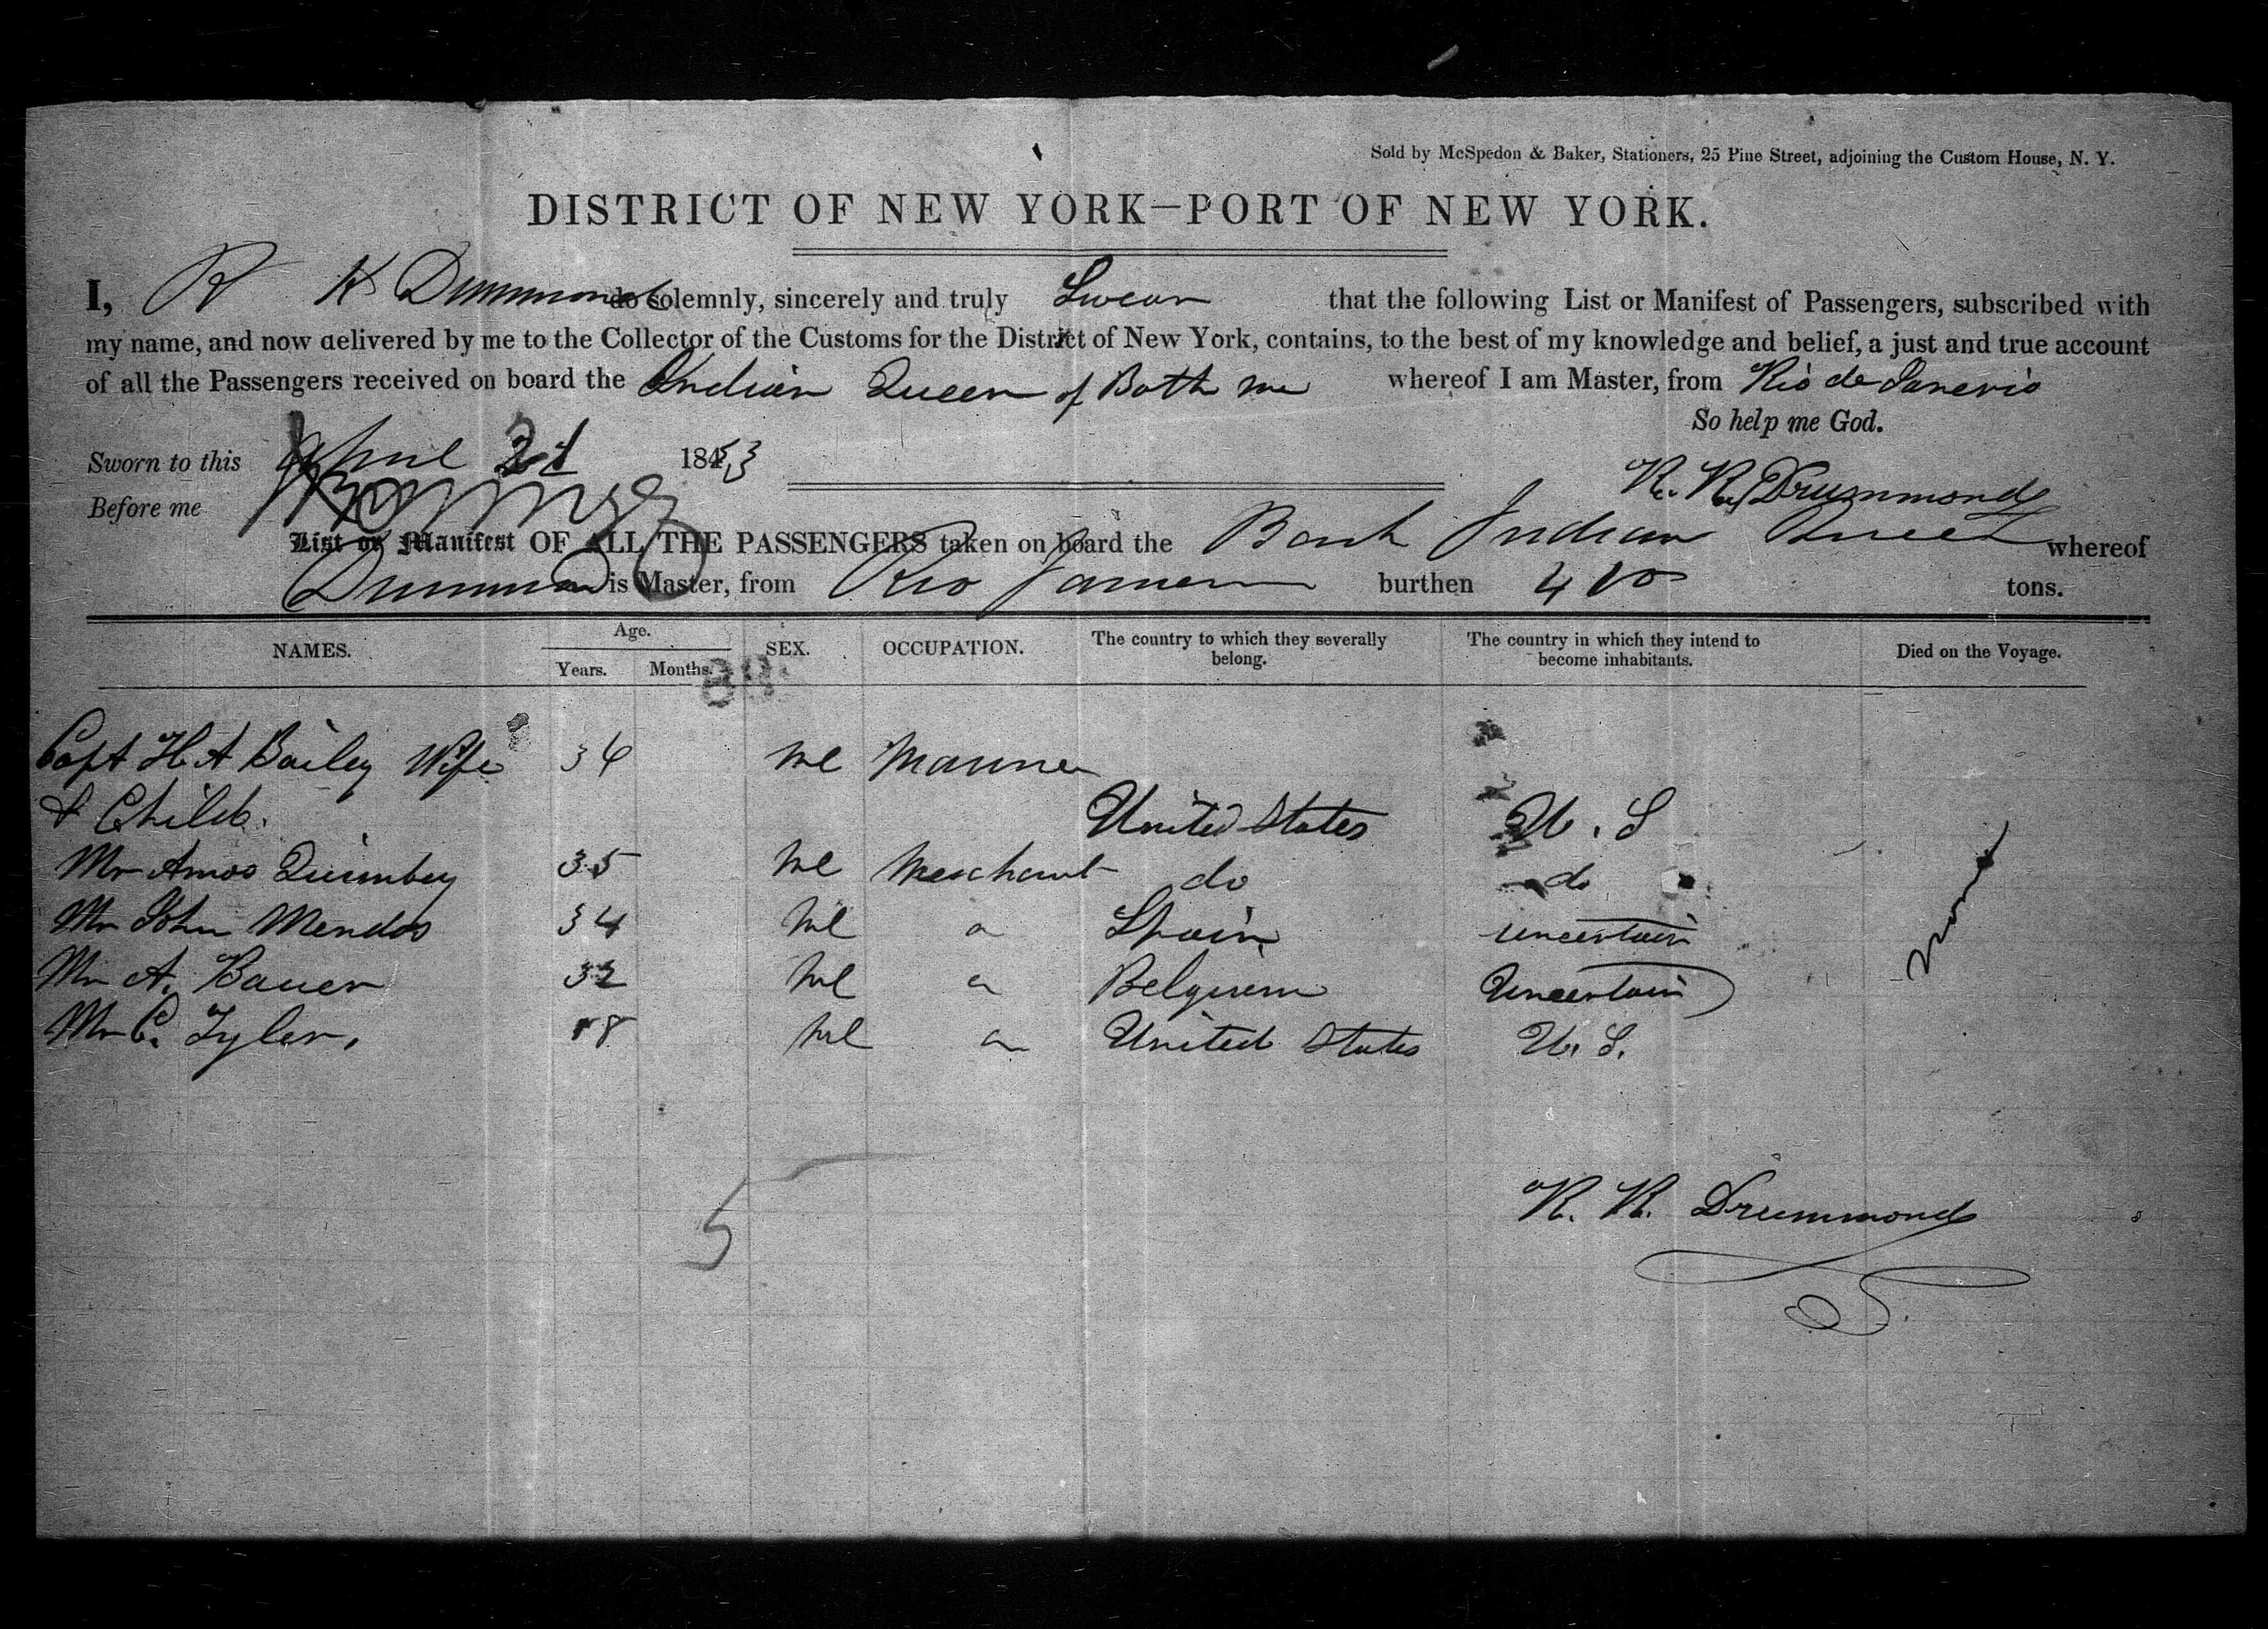 Sold by McSpedon & Baker, Stationers, 25 Pine Street, adjoining the Custom House, N. Y.
DISTRICT OF NEW YORK—PORT OF NEW YORK.
I, R K Drummond do solemnly, sincerely and truly Swear that the following List or Manifest of Passengers, subscribed with
my name, and now delivered by me to the Collector of the Customs for the District of New York, contains, to the best of my knowledge and belief, a just and true account
of all the Passengers received on board the Indian Queen of Bath Me whereof I am Master, from Rio de Janerio
So help me God.
Sworn to this April 21 1853
R. K. Drummond
Before me
List or Manifest OF ALL THE PASSENGERS taken on board the Bark Indian Queen whereof
Drummond is Master, from Rio Janeiro burthen 400 tons.
NAMES. Age. Years. Months. SEX. OCCUPATION. The country to which they severally belong. The country in which they intend to become inhabitants. Died on the Voyage.
Capt H A Bailey Wife 36 Ml Mariner
& Child. United States U. S
Mr Amos Quimby 35 Ml Merchant do do
Mr John Mendos 34 Ml " Spain uncertain
Mr A. Bauer 32 Ml " Belgium Uncertain
Mr C. Tyler, 18 Ml " United States U. S.
None
5
R. K. Drummond